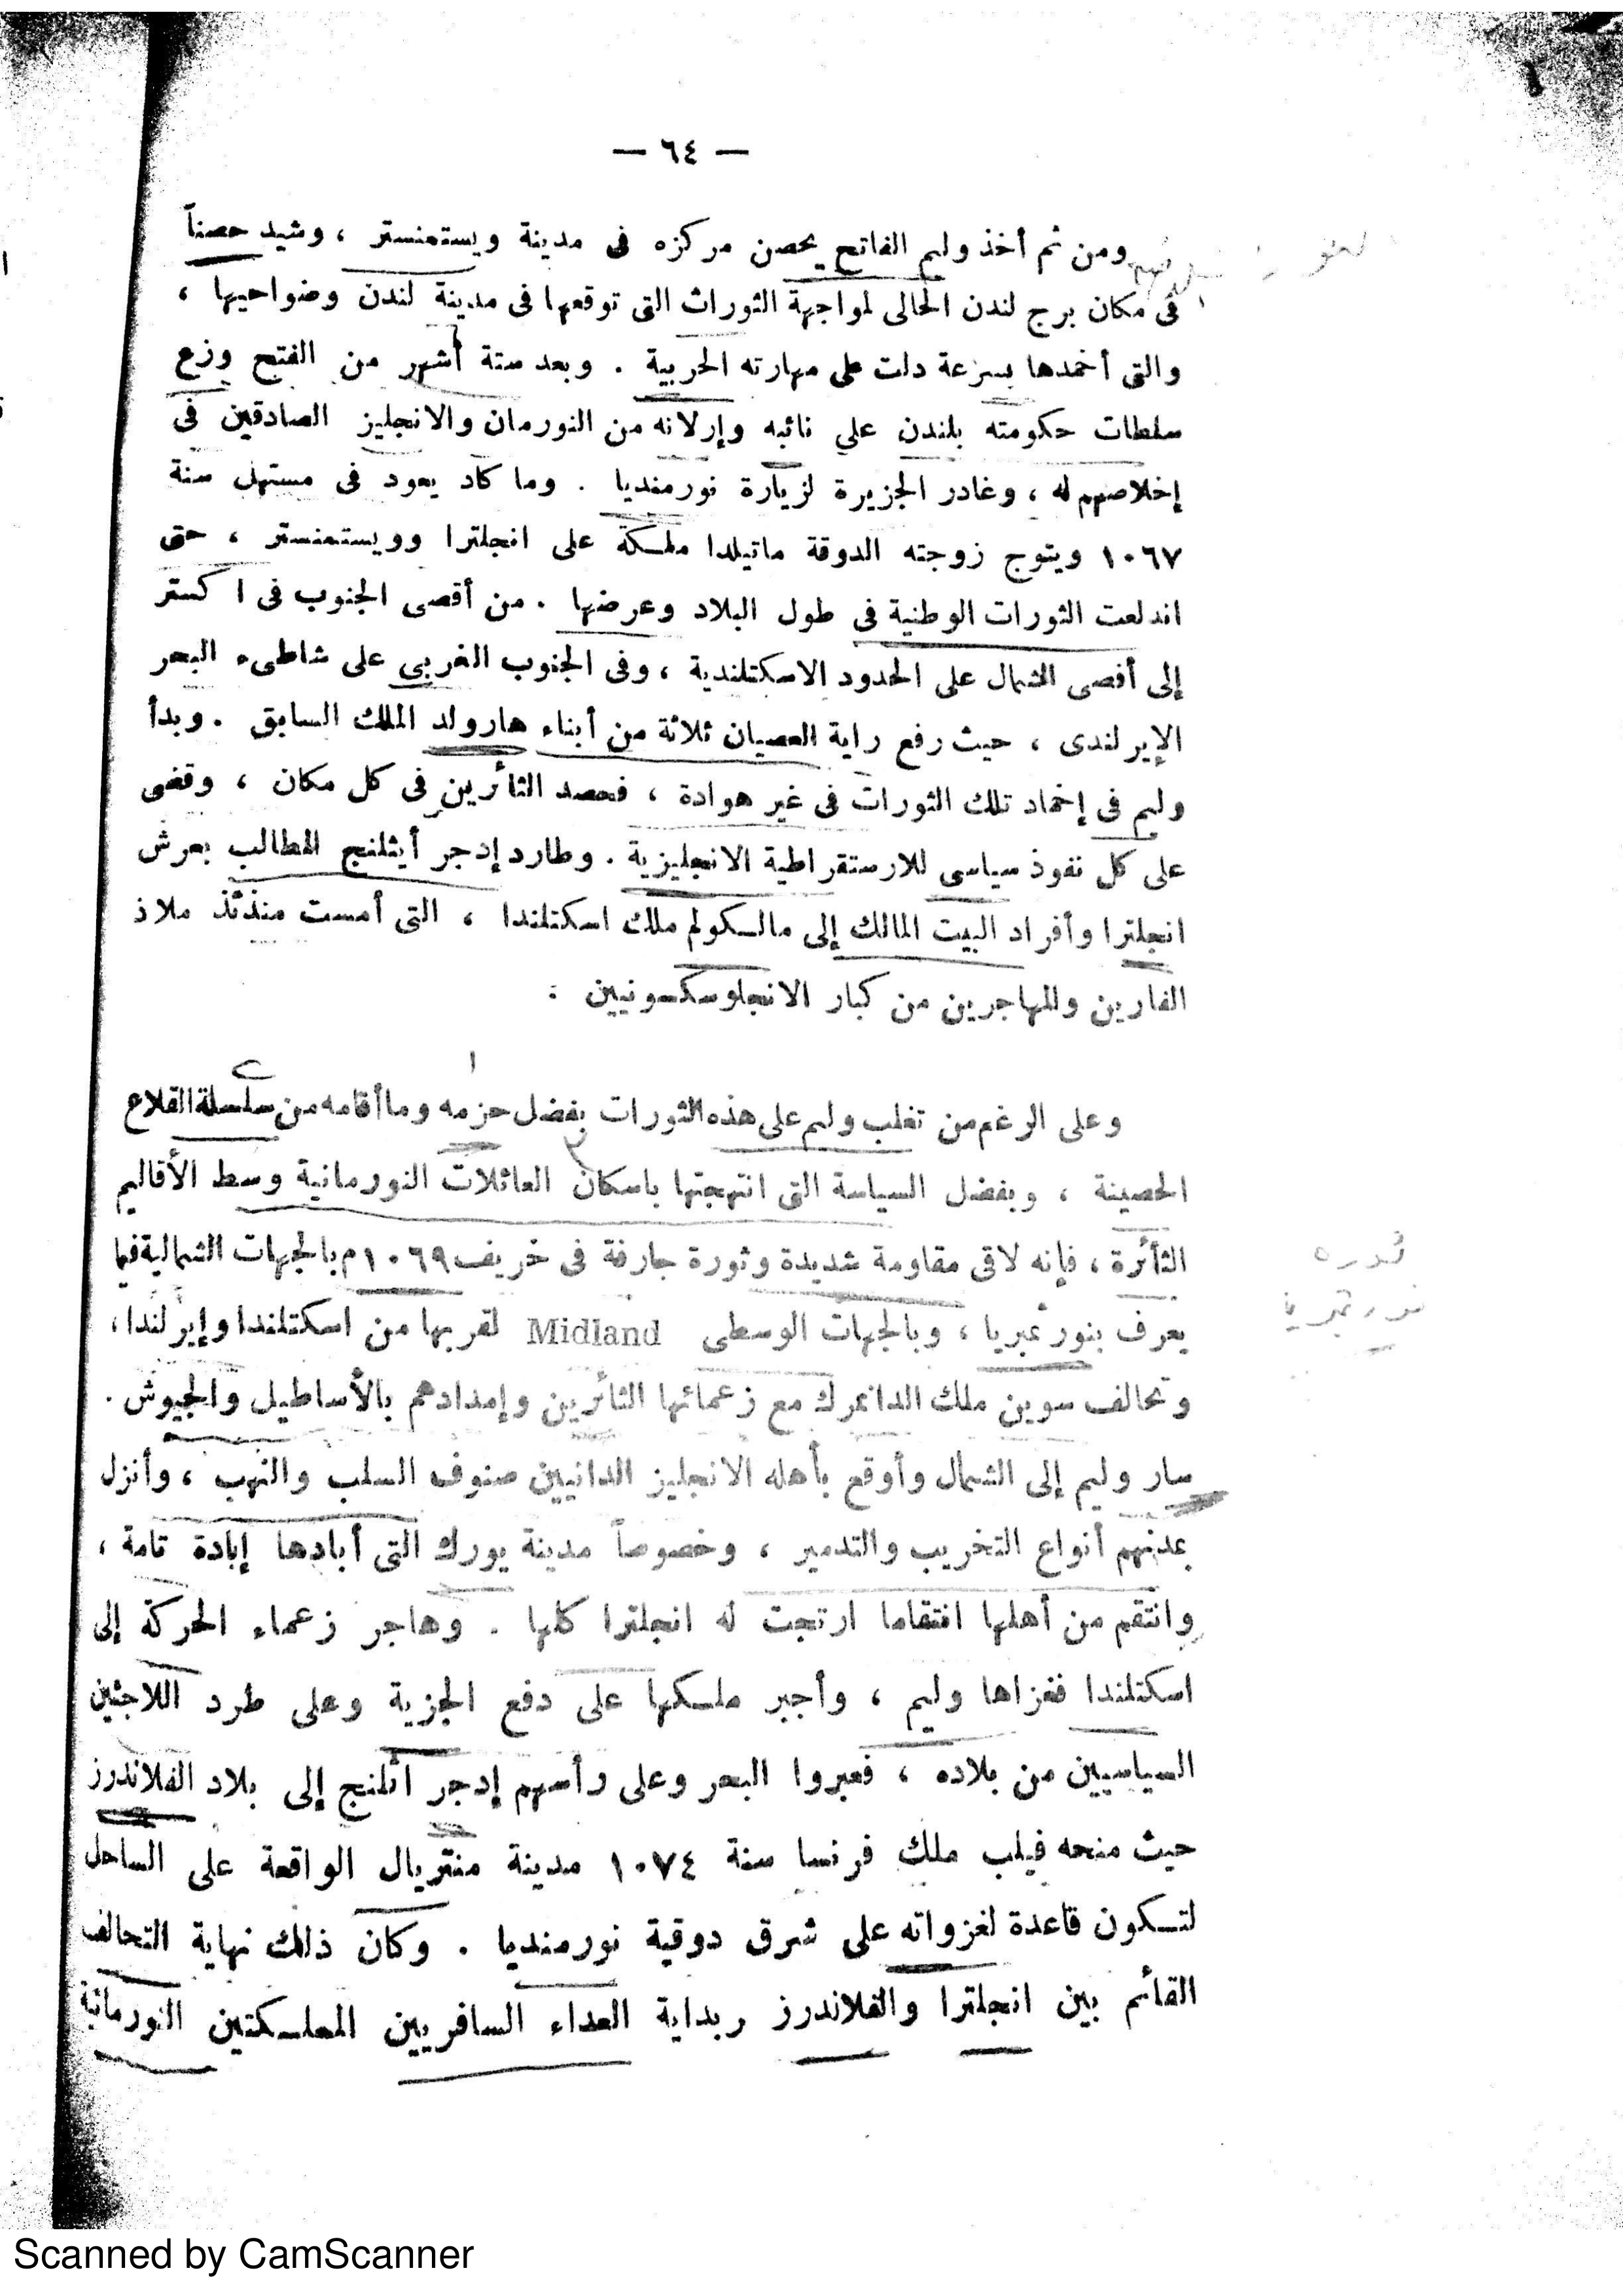 — ٦٤ —
ومن ثم أخذ وليم الفاتح يحصن مركزه فى مدينة ويستمنستر ، وشيد حصناً
فى مكان برج لندن الحالى لمواجهة الثورات التى توقعها فى مدينة لندن وضواحيها ،
والتى أخمدها بسرعة دلت على مهارته الحربية . وبعد ستة أشهر من الفتح وزع
سلطات حكومته بلندن على نائبه وإرلانه من النورمان والانجليز الصادقين فى
إخلاصهم له ، وغادر الجزيرة لزيارة نورمنديا . وما كاد يعود فى مستهل سنة
١٠٦٧ ويتوج زوجته الدوقة ماتيلدا ملكة على انجلترا وويستمنستر ، حتى
اندلعت الثورات الوطنية فى طول البلاد وعرضها . من أقصى الجنوب فى اكستر
إلى أقصى الشمال على الحدود الاسكتلندية ، وفى الجنوب الغربى على شاطىء البحر
الإيرلندى ، حيث رفع راية العصيان ثلاثة من أبناء هارولد الملك السابق . وبدأ
وليم فى إخماد تلك الثورات فى غير هوادة ، فحصد الثائرين فى كل مكان ، وقضى
على كل نفوذ سياسى للارستقراطية الانجليزية . وطارد إدجر أيثلنج المطالب بعرش
انجلترا وأفراد البيت المالك إلى مالكولم ملك اسكتلندا ، التى أمست منذئذ ملاذ
الفارين والمهاجرين من كبار الانجلوسكسونيين :
وعلى الرغم من تغلب وليم على هذه الثورات بفضل حزمه وما أقامه من سلسلة القلاع
الحصينة ، وبفضل السياسة التى انتهجتها باسكان العائلات النورمانية وسط الأقاليم
الثائرة ، فإنه لاقى مقاومة شديدة وثورة جارفة فى خريف ١٠٦٩م بالجهات الشمالية فيما
يعرف بنورثمبريا ، وبالجهات الوسطى Midland لقربها من اسكتلندا وإيرلندا،
وتحالف سوين ملك الدانمرك مع زعمائها الثائرين وإمدادهم بالأساطيل والجيوش .
سار وليم إلى الشمال وأوقع بأهله الانجليز الدانيين صنوف السلب والنهب ، وأنزل
بمدنهم أنواع التخريب والتدمير ، وخصوصاً مدينة يورك التى أبادها إبادة تامة ،
وانتقم من أهلها انتقاما ارتجت له انجلترا كلها . وهاجر زعماء الحركة إلى
اسكتلندا فغزاها وليم ، وأجبر ملكها على دفع الجزية وعلى طرد اللاجئين
السياسيين من بلاده ، فعبروا البحر وعلى رأسهم إدجر اثلنج إلى بلاد الفلاندرز
حيث منحه فيلب ملك فرنسا سنة ١٠٧٤ مدينة منتريال الواقعة على الساحل
لتكون قاعدة لغزواته على شرق دوقية نورمنديا . وكان ذلك نهاية التحالف
القائم بين انجلترا والفلاندرز وبداية العداء السافر بين المملكتين النورمانية
ثوره
نورثمبريا
Scanned by CamScanner